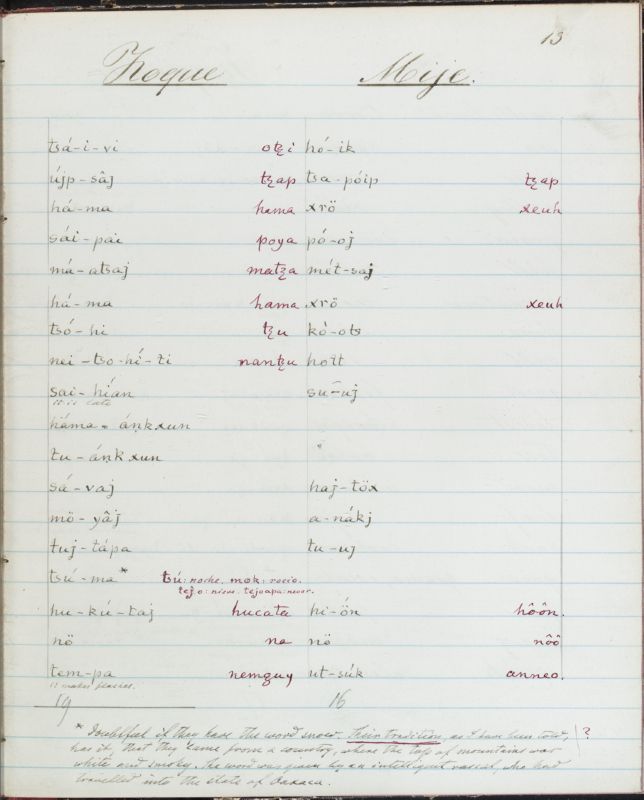 13
Zoque Mije.
tsá-i-vi otz̧i hó-ik
újp-sâj tz̧ap tsa-póip tz̧ap
há-ma hama xrö xeuh
sái-pai poya pó-oj
má-atsaj matz̧a mét-saj
há-ma hama xrö xeuh
tsó-hi tz̧u kó-ots
nei-tso-hí-ti nantz̧u hoit
sai-hían su-uj
it is late
háma-áņkxun
tu-áņkxun
sá-vaj haj-töx
mö-yâj a-nákj
tuj-tápa tu-uj
tsú-ma* tsú: noche. mok: rocio.
tejo: nieve. tejoapa: nevar.
hu-kú-taj hucata hi-ón hôôn.
nö na nö nôô
tem-pa nemguy ut-súk anneo.
it makes flashes.
19 16
* Doubtful if they have the word snow. Their tradition, as I have been told, ?
has it, that they came from a country, where the tops of mountains was
white and smoky. The word was given by an intelligent rascal, who had
travelled into the state of Oaxaca.